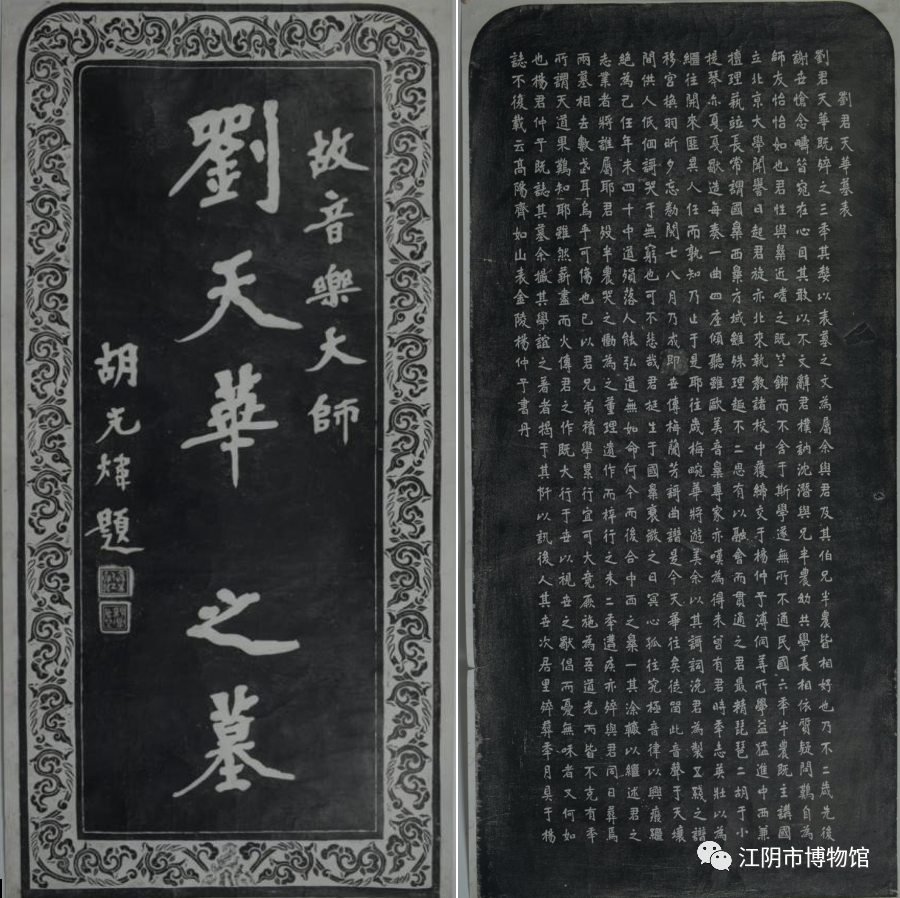 故音樂大師
劉天華之墓
胡光煒題
劉君天華墓表
劉君天華既碎之三季其以表墓之文為屬余與君及其伯兄半農皆相好也乃不二歲先後
謝世愴念疇昔宛在心目其敢以不文辭君樸訥沈潛與兄半農幼共學長相依質疑問難自為
師友怡怡如也君性與樂近嗜之既竺鍥而不舍于斯學遂無所不通民國六季半農既主講國
立北京大學聞譽日起君旋亦北來執教諸校中寢締交于楊仲子溥侗等所學益猛進中西兼
擅理蓺竝長常謂國樂西樂方域雖殊理趣不二思有以融會而貫通之君最精琵琶二胡于小
提琴亦戛戛獨造每奏一曲四座傾聽雖歐美音樂專家亦嘆為得未曾有君時季志英壯以為
繼往開來匪異人任而孰知乃止于是耶往歲梅畹華將遊美余以其謌詞浼君為製五綫之譜
移宮換羽昕夕忘勌閱七八月乃成即世傳梅蘭芳謌曲譜是今天華往矣徒留此音聲于天壤
間供人低佪謌哭于無窮也可不悲哉君挺生于國樂衰微之日冥心孤往究極音律以興廢繼
絕為己任年未四十中道殞落人能弘道無如命何今而後合中西之樂一其涂轍以繼述君之
志業者將誰屬耶君歿半農哭之慟為之董理遺作而梓行之未二季遘疾亦碎與君同日葬焉
兩墓相去數武耳烏乎可傷也已以君兄弟積學累行宜可大竟厥施為吾道光而皆不克有季
所謂天道果難知耶雖然薪盡而火傳君之作既大行于世以視世之獨倡而憂無咊者又何如
也楊君仲子既誌其墓余撮其學誼之著者揭于其阡以訊後人其世次居里碎葬季月具于楊
誌不復載云高陽齊如山表金陵楊仲子書丹
江阴市博物馆